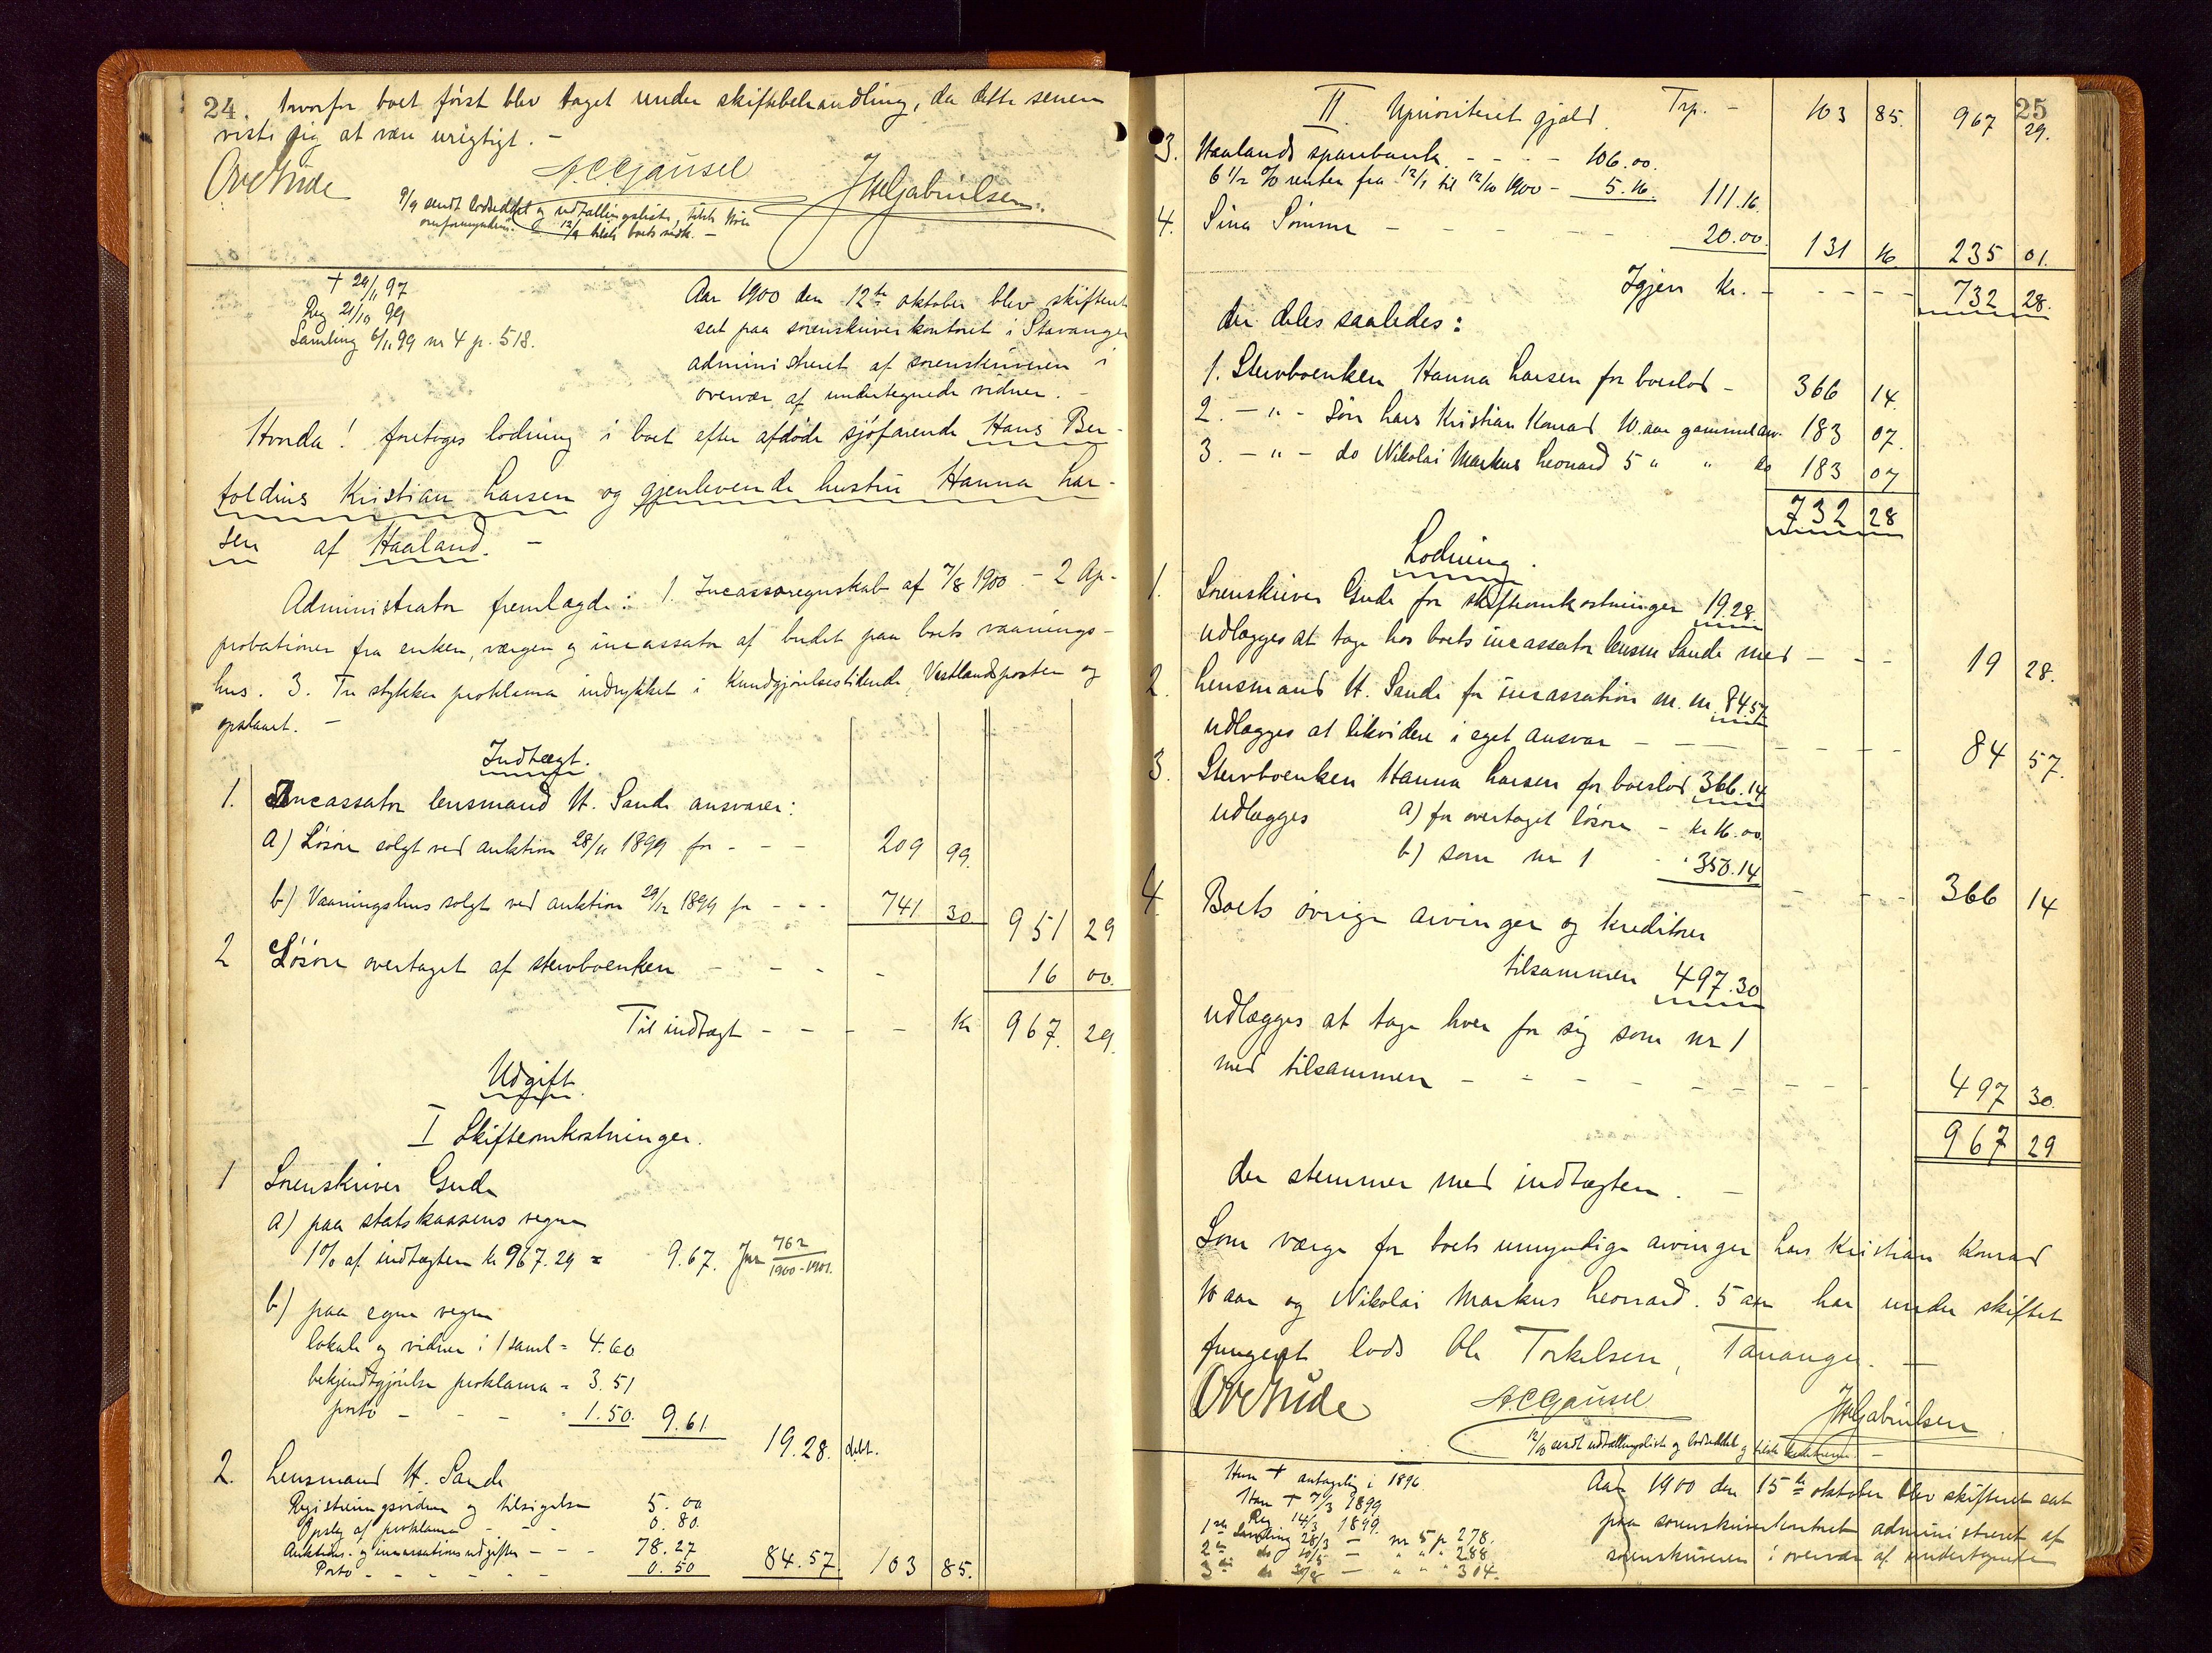 24. hvorfor boet først blev taget under skiftebehandling, da dette senere
viste sig at være urigtigt. –
Ove Gude
A.C. Gausel
J W Gabrielsen
9/9 sendt lodseddel og udtallingsliste,
overformynderi. 12/9 boets vedk. –
+ 29/11 97
Reg 21/10 99
Samling 6/11 99 nr 4 p. 518.
Aar 1900 den 12te oktober blev skifteret
sat paa sorenskriverkontoret i Stavanger
administreret af sorenskriveren i
overvær af undertegnede vidner. –
Hvorda! foretoges lodning i boet efter afdøde sjøfarende Hans Ber-
toldius Kristian Larsen og gjenlevende hustru Hanna Lar-
sen af Haaland. –
Administrator fremlagde: 1. Incassoregnskab af 7/8 1900 – 2 Ap-
probationer fra enken, værgen og incassator af budet paa boets vaanings-
hus. 3. Tre stykker proklama indrykket i Kundgjørelsestidende, Vestlandsposten og
opslaaet. –
Indtægt.
1. Incassator lensmand H. Sande ansvarer:
a) Løsøre solgt ved auktion 28/11 1899 for - - - 209 99.
b) Vaaningshus solgt ved auktion 29/12 1899 for - - - 741 30 951 29
2 Løsøre overtaget af stervboenken - - - - 16 00.
Til indtægt - - - - Kr 967. 29.
Udgift.
I Skifteomkostninger.
1 Sorenskriver Gude
a) paa statskassens vegne
1% af indtægten kr 967.29 = 9.67. Jnr 762/1900-1901.
b) paa egne vegne
lokale og vidner i 1 saml = 4.60
bekjendtgjørelse proklama = 3.51
porto - - - - 1.50. 9.61 19.28. debt.
2. Lensmand H. Sande
Registreringsvidner og tilsigelse 5.00
Opslag af proklama - - - 0.80.
Auktions- og incassationsudgifter - - - 78.27
Porto - - - - - - 0.50 84.57. 103 85.
25
II. Uprioriteret gjæld. Trp. - 103 85. 967 29.
3. Haalands sparebank. - - - - 106.00.
6 1/2 % renter fra 12/1 til 12/10 1900 - 5.16. 111.16.
4. Sina Sømme - - - - - 20.00. 131 16 235 01.
Igjen kr. - - - - - 732 28.
der deles saaledes:
1. Stervboenken Hanna Larsen for boeslod - 366 14.
2. - " - søn Lars Kristian Konrad 10 aar gammel arv. 183 07.
3. - " - do Nikolai Markus Leonard 5 " " do 183 07
732 28
Lodning.
1. Sorenskriver Gude for skifteomkostninger 19.28.
udlægges at tage hos boets incassator lensm Sande med - - - 19 28.
2. Lensmand H. Sande for incassation m. m. 84.57
udlægges at likvidere i eget ansvar - - - - - - 84 57.
3. Stervboenken Hanna Larsen for boeslod 366.14
udlægges a) for overtaget løsøre - kr 16.00.
b) som nr 1 - " 350.14 - - - 366 14
4. Boets øvrige arvinger og kreditorer
tilsammen 497.30
udlægges at tage hver for sig som nr 1
med tilsammen - - - - - - - - 497 30.
967 29
der stemmer med indtægten. –
Som værge for boets umyndige arvinger Lars Kristian Konrad
10 aar og Nikolai Markus Leonard. 5 aar har under skiftet
fungeret lods Ole Torkelsen, Tananger. –
Ove Gude
A.C. Gausel
J W Gabrielsen
12/10 sendt udtallingsliste og lodseddel og tilste kreditorerne –
Hun + antagelig i 1896.
Han + 7/3 1899
Reg 14/3 1899.
1ste Samling 28/3 – nr 5 p 278.
2den do 10/5 – " " " 288
3die do 30/8 – " " " 304.
Aar 1900 den 15te oktober blev skifteret sat
paa sorenskriverkontoret administreret af
sorenskriveren i overvær af undertegnede